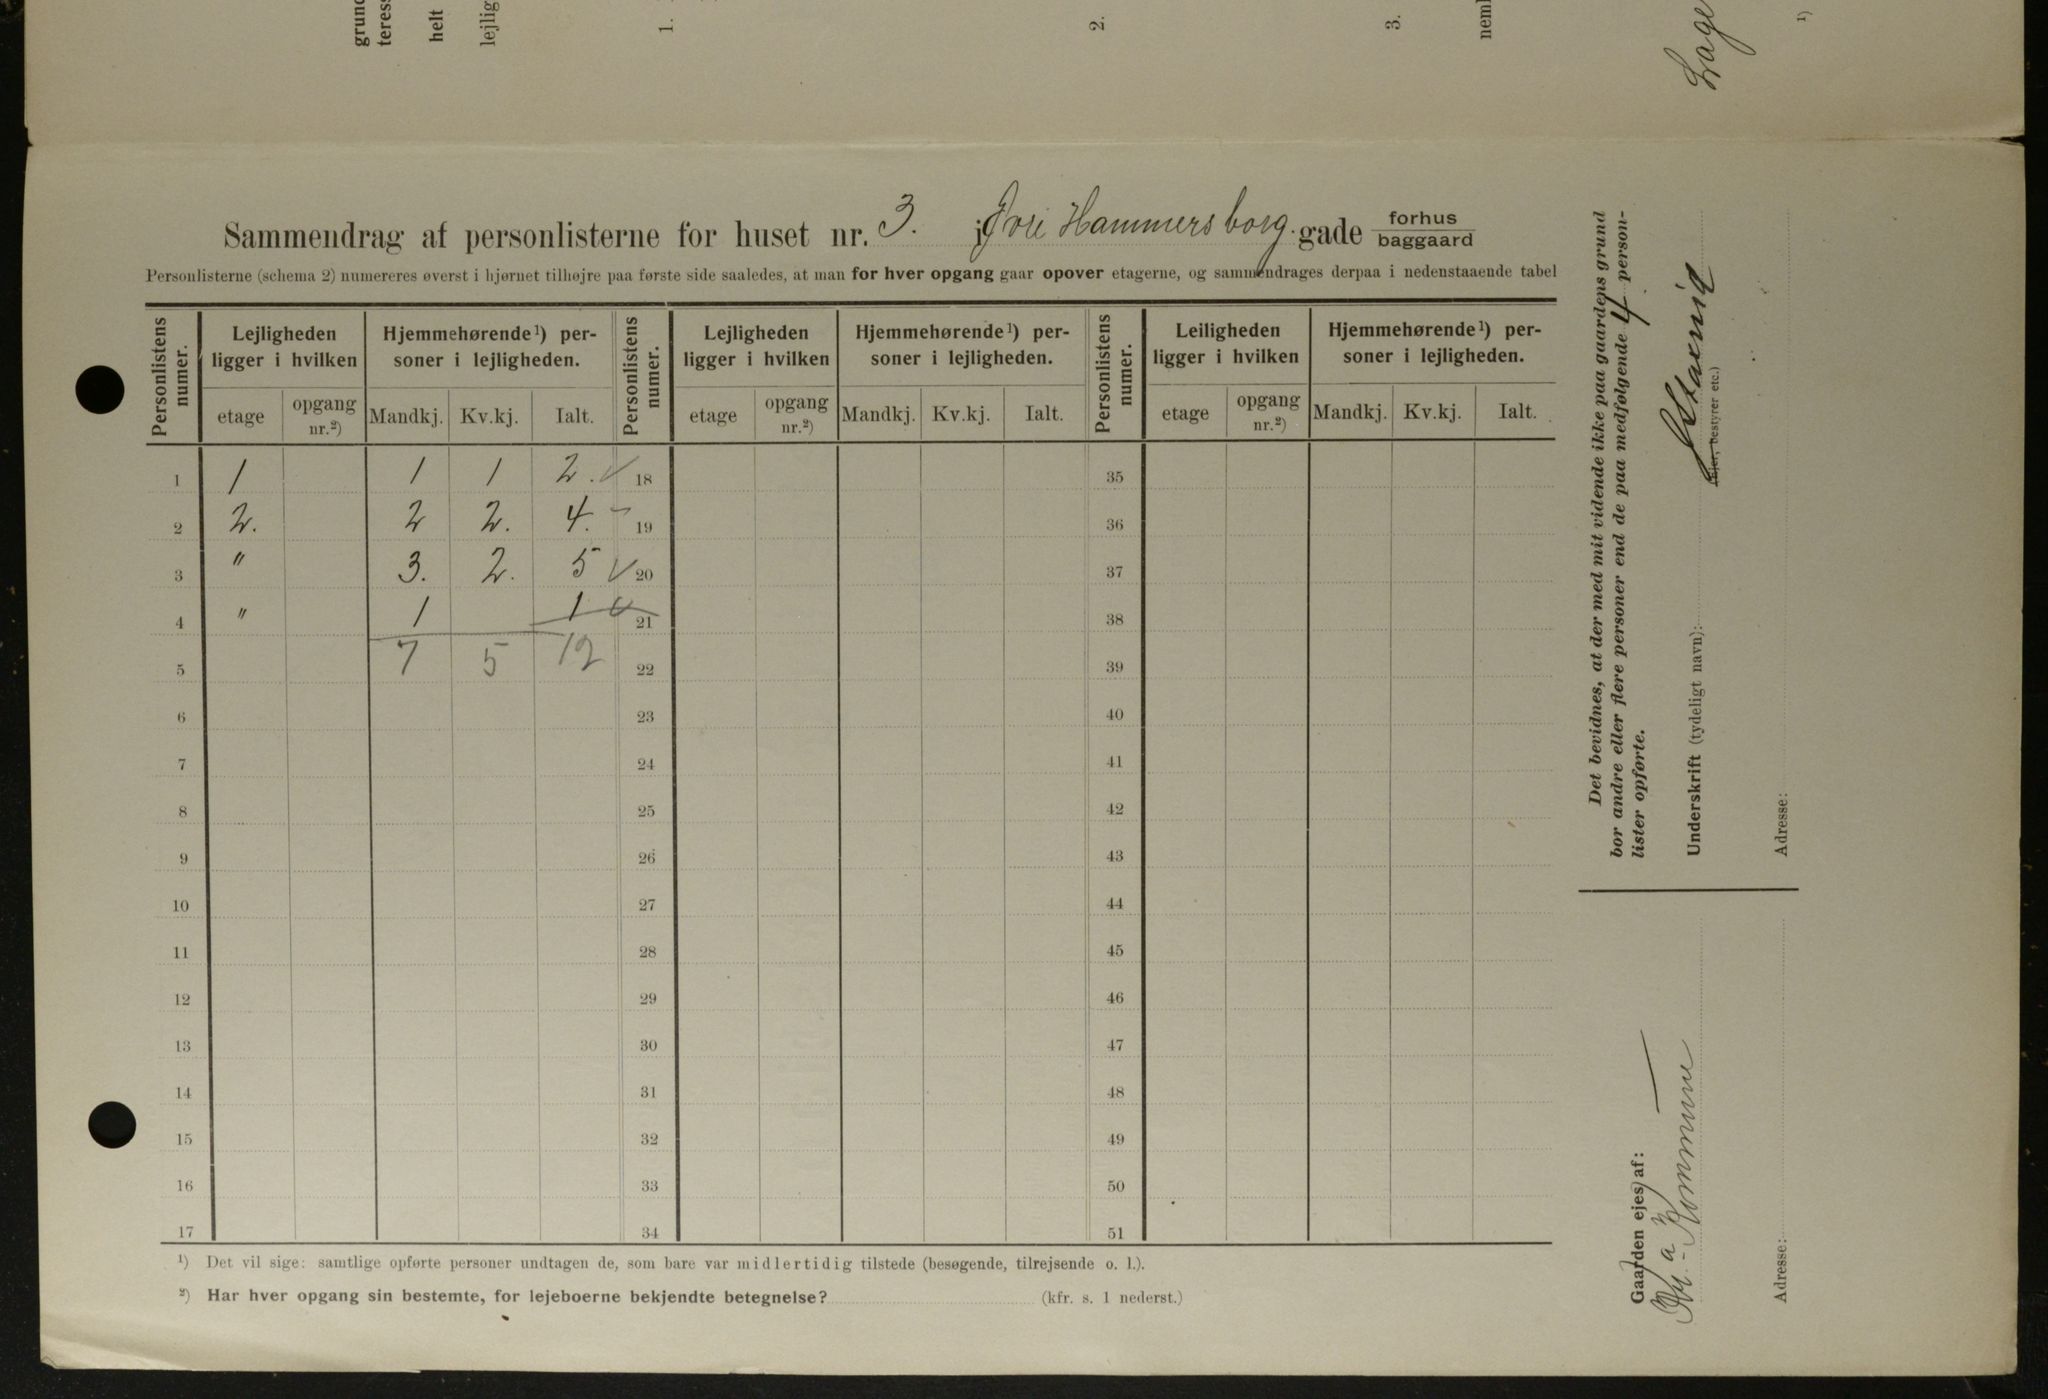 grund
teress
helt
lejlig
1.
2.
3.
neml
Lage
1)
Sammendrag af personlisterne for huset nr. 3. i Øvre Hammersborg. gade forhus
baggaard
Personlisterne (schema 2) numereres øverst i hjørnet tilhøjre paa første side saaledes, at man for hver opgang gaar opover etagerne, og sammendrages derpaa i nedenstaaende tabel
Personlistens numer. Lejligheden Hjemmehørende¹) per- Personlistens numer. Lejligheden Hjemmehørende¹) per- Personlistens numer. Leiligheden Hjemmehørende¹) per-
ligger i hvilken soner i lejligheden. ligger i hvilken soner i lejligheden. ligger i hvilken soner i lejligheden.
etage opgang nr.²) Mandkj. Kv.kj. Ialt. etage opgang nr.²) Mandkj. Kv.kj. Ialt. etage opgang nr.²) Mandkj. Kv.kj. Ialt.
1 1 1 1 2. 18 35
2 2. 2 2. 4. 19 36
3 " 3. 2. 5 20 37
4 " 1 1 21 38
5 7 5 12 22 39
6 23 40
7 24 41
8 25 42
9 26 43
10 27 44
11 28 45
12 29 46
13 30 47
14 31 48
15 32 49
16 33 50
17 34 51
¹) Det vil sige: samtlige opførte personer undtagen de, som bare var midlertidig tilstede (besøgende, tilrejsende o. l.).
²) Har hver opgang sin bestemte, for lejeboerne bekjendte betegnelse? (kfr. s. 1 nederst.)
Det bevidnes, at der med mit vidende ikke paa gaardens grund
bor andre eller flere personer end de paa medfølgende 4 person-
lister opførte.
Underskrift (tydeligt navn):
(Ejer, bestyrer etc.)
Adresse:
Gaarden ejes af:
Kr.a Kommune
Adresse: